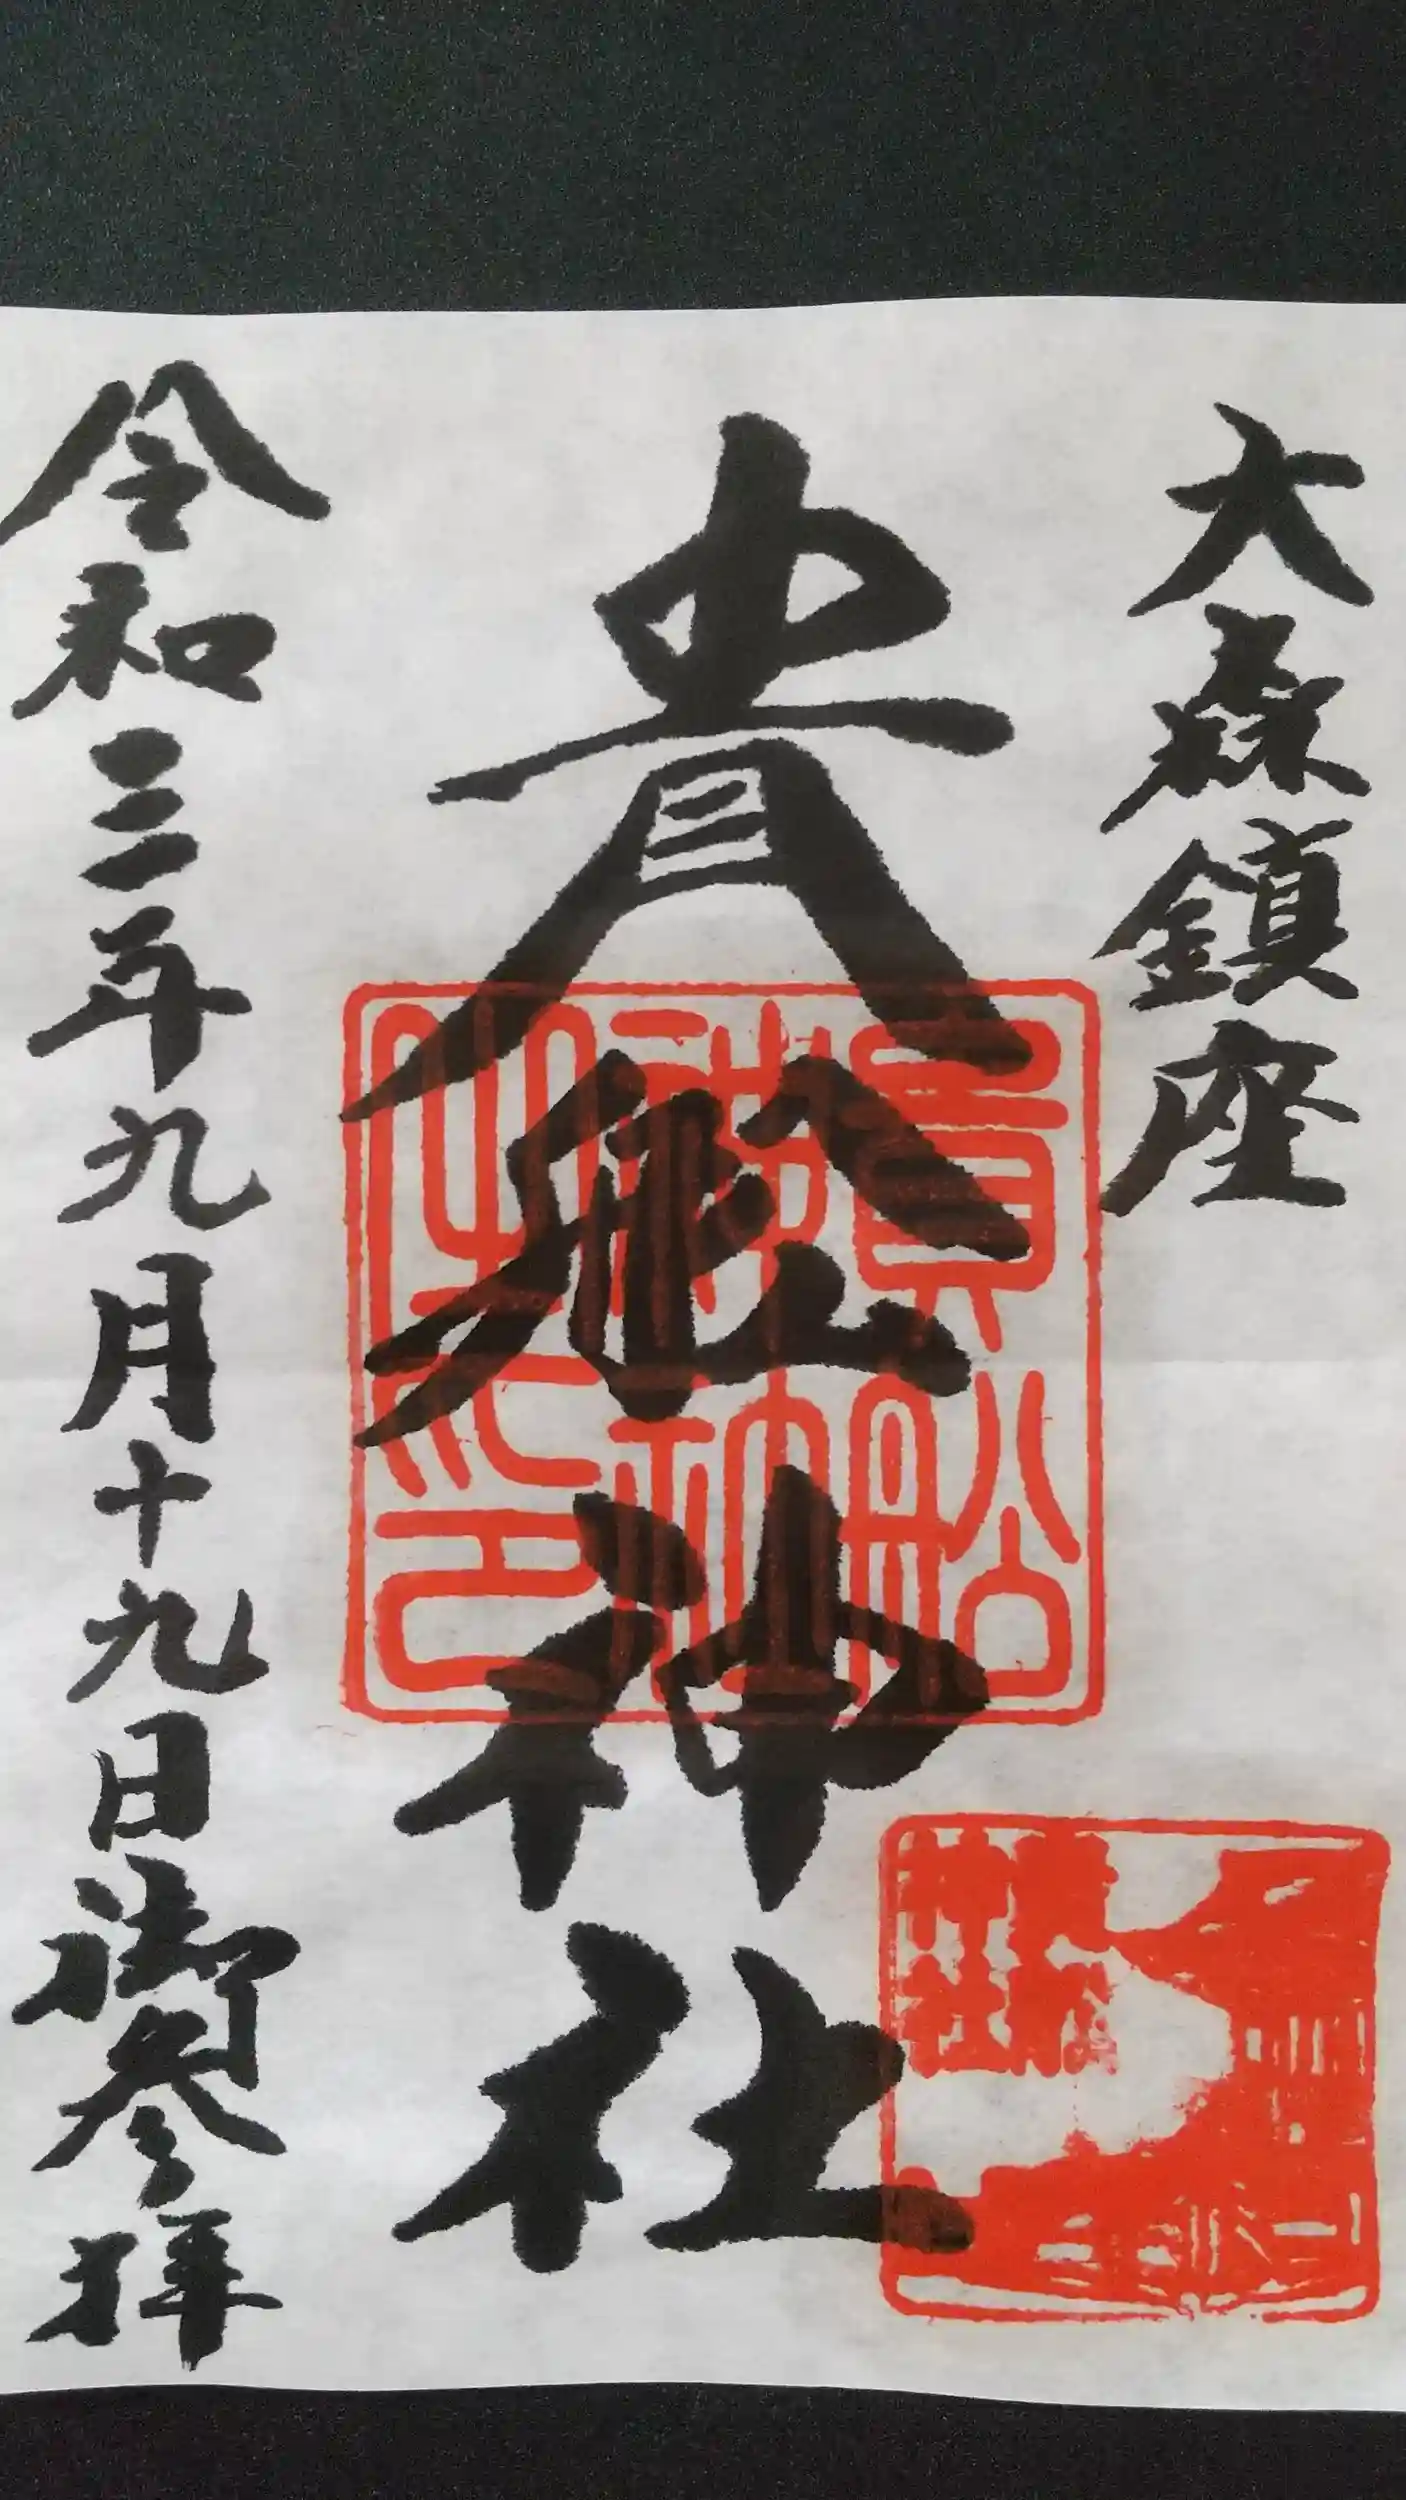 大森鎮座
貴舩神社
令和三年九月十九日御參拝
貴舩神社之印
貴舩神社